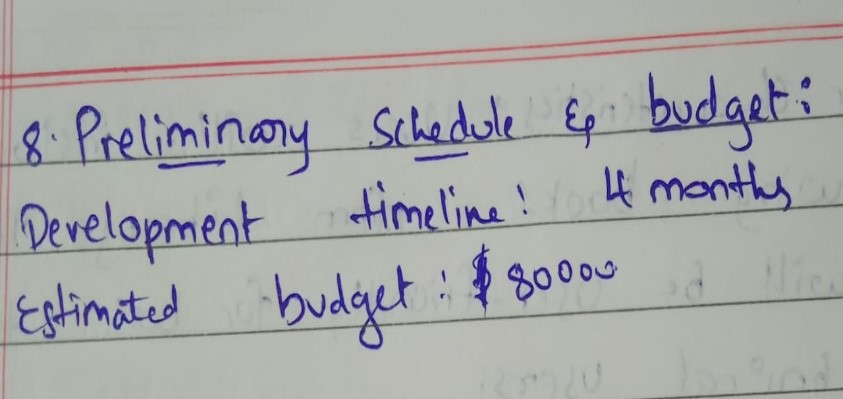 8. Preliminary Schedule & budget:
Development timeline: 4 months
Estimated budget: $ 80000